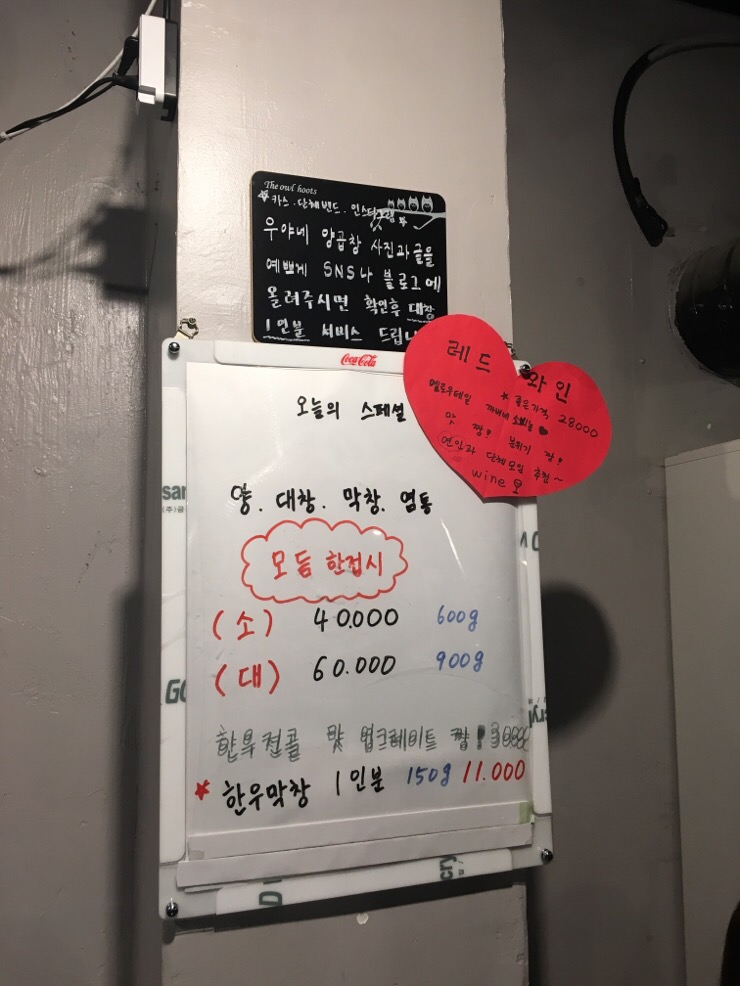 The owl hoots
카스. 단체밴드. 인스타그램
우야네 양곱창 사진과 글을
예쁘게 SNS나 블로그에
올려주시면 확인후 대창
1인분 서비스 드립니
Coca-Cola
레드 와인
좋은가격 28000
옐로우테일 까버네 소비뇽
맛 짱? 분위기 짱?
연인과 단체모임 추천~
wine
오늘의 스페셜
양. 대창. 막창. 염통
모듬 한접시
(소) 40.000 600g
(대) 60.000 900g
한우전골 맛 업그레이드 짱!
한우막창 1인분 150g 11.000